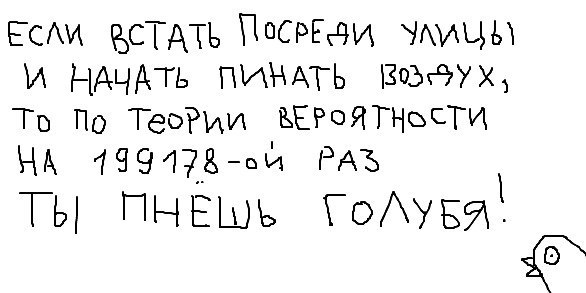 ЕСЛИ ВСТАТЬ ПОСРЕДИ УЛИЦЫ
И НАЧАТЬ ПИНАТЬ ВОЗДУХ,
ТО ПО ТЕОРИИ ВЕРОЯТНОСТИ
НА 199178-ой РАЗ
ТЫ ПНЁШЬ ГОЛУБЯ!